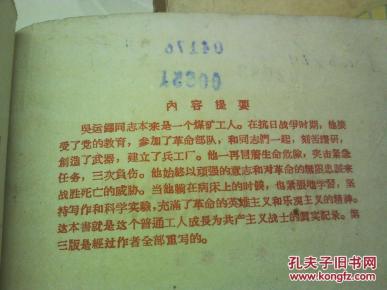 04176
00851
内容提要
吳运鐸同志本来是一个煤矿工人。在抗日战爭时期，他接
受了党的教育，参加了革命部队，和同志們一起，刻苦鑽研，
創造了武器，建立了兵工厂。他一再冒着生命危險，突击緊急
任务，三次負伤。他始終以頑强的意志和对革命的無限忠誠来
战胜死亡的威胁。当他躺在病床上的时候，也緊張地学習，坚
持写作和科学实驗，充滿了革命的英雄主义和乐观主义的精神。
这本書就是这个普通工人成長为共产主义战士的真实紀录。第
三版是經过作者全部重写的。